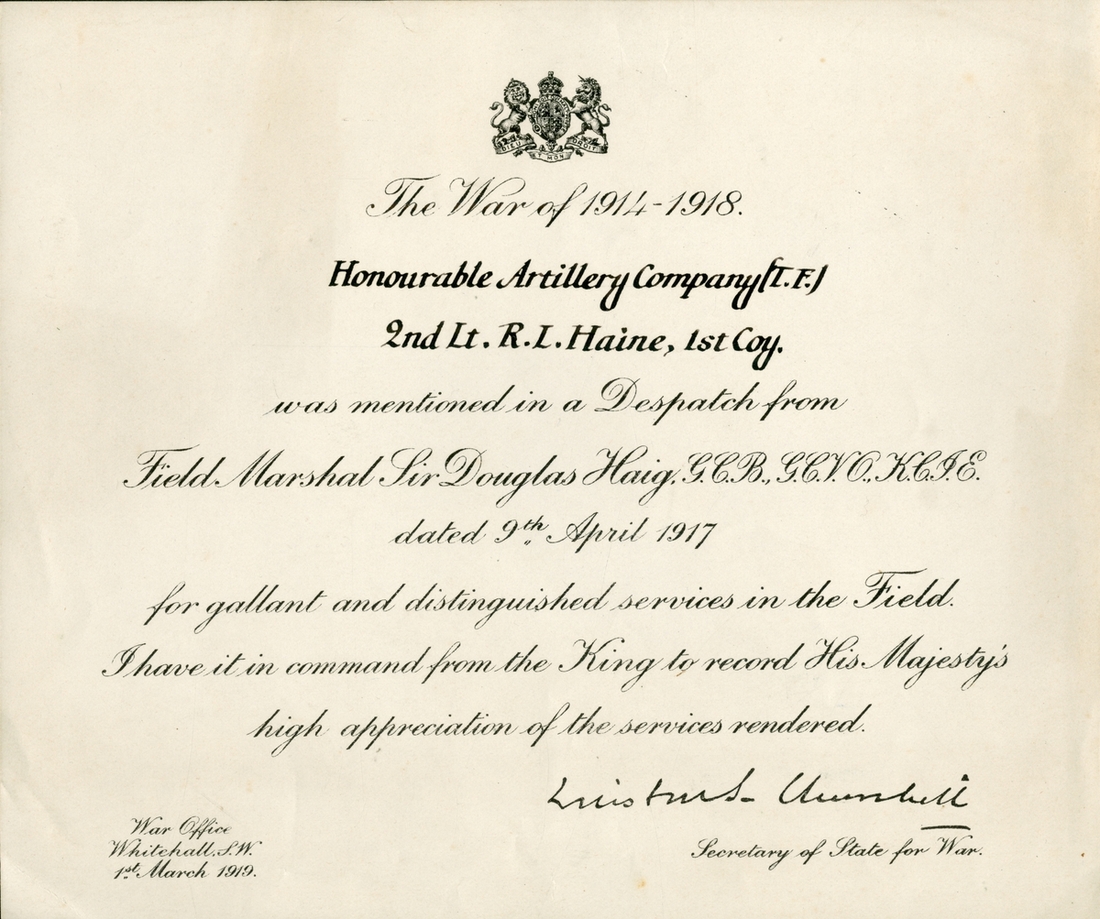 DIEU ET MON DROIT
The War of 1914-1918.
Honourable Artillery Company (T.F.)
2nd Lt. R. L. Haine, 1st Coy.
was mentioned in a Despatch from
Field Marshal Sir Douglas Haig, G.C.B., G.C.V.O., K.C.I.E.
dated 9th April 1917
for gallant and distinguished services in the Field.
I have it in command from the King to record His Majesty's
high appreciation of the services rendered.
Winston S. Churchill
Secretary of State for War.
War Office
Whitehall, S.W.
1st March 1919.